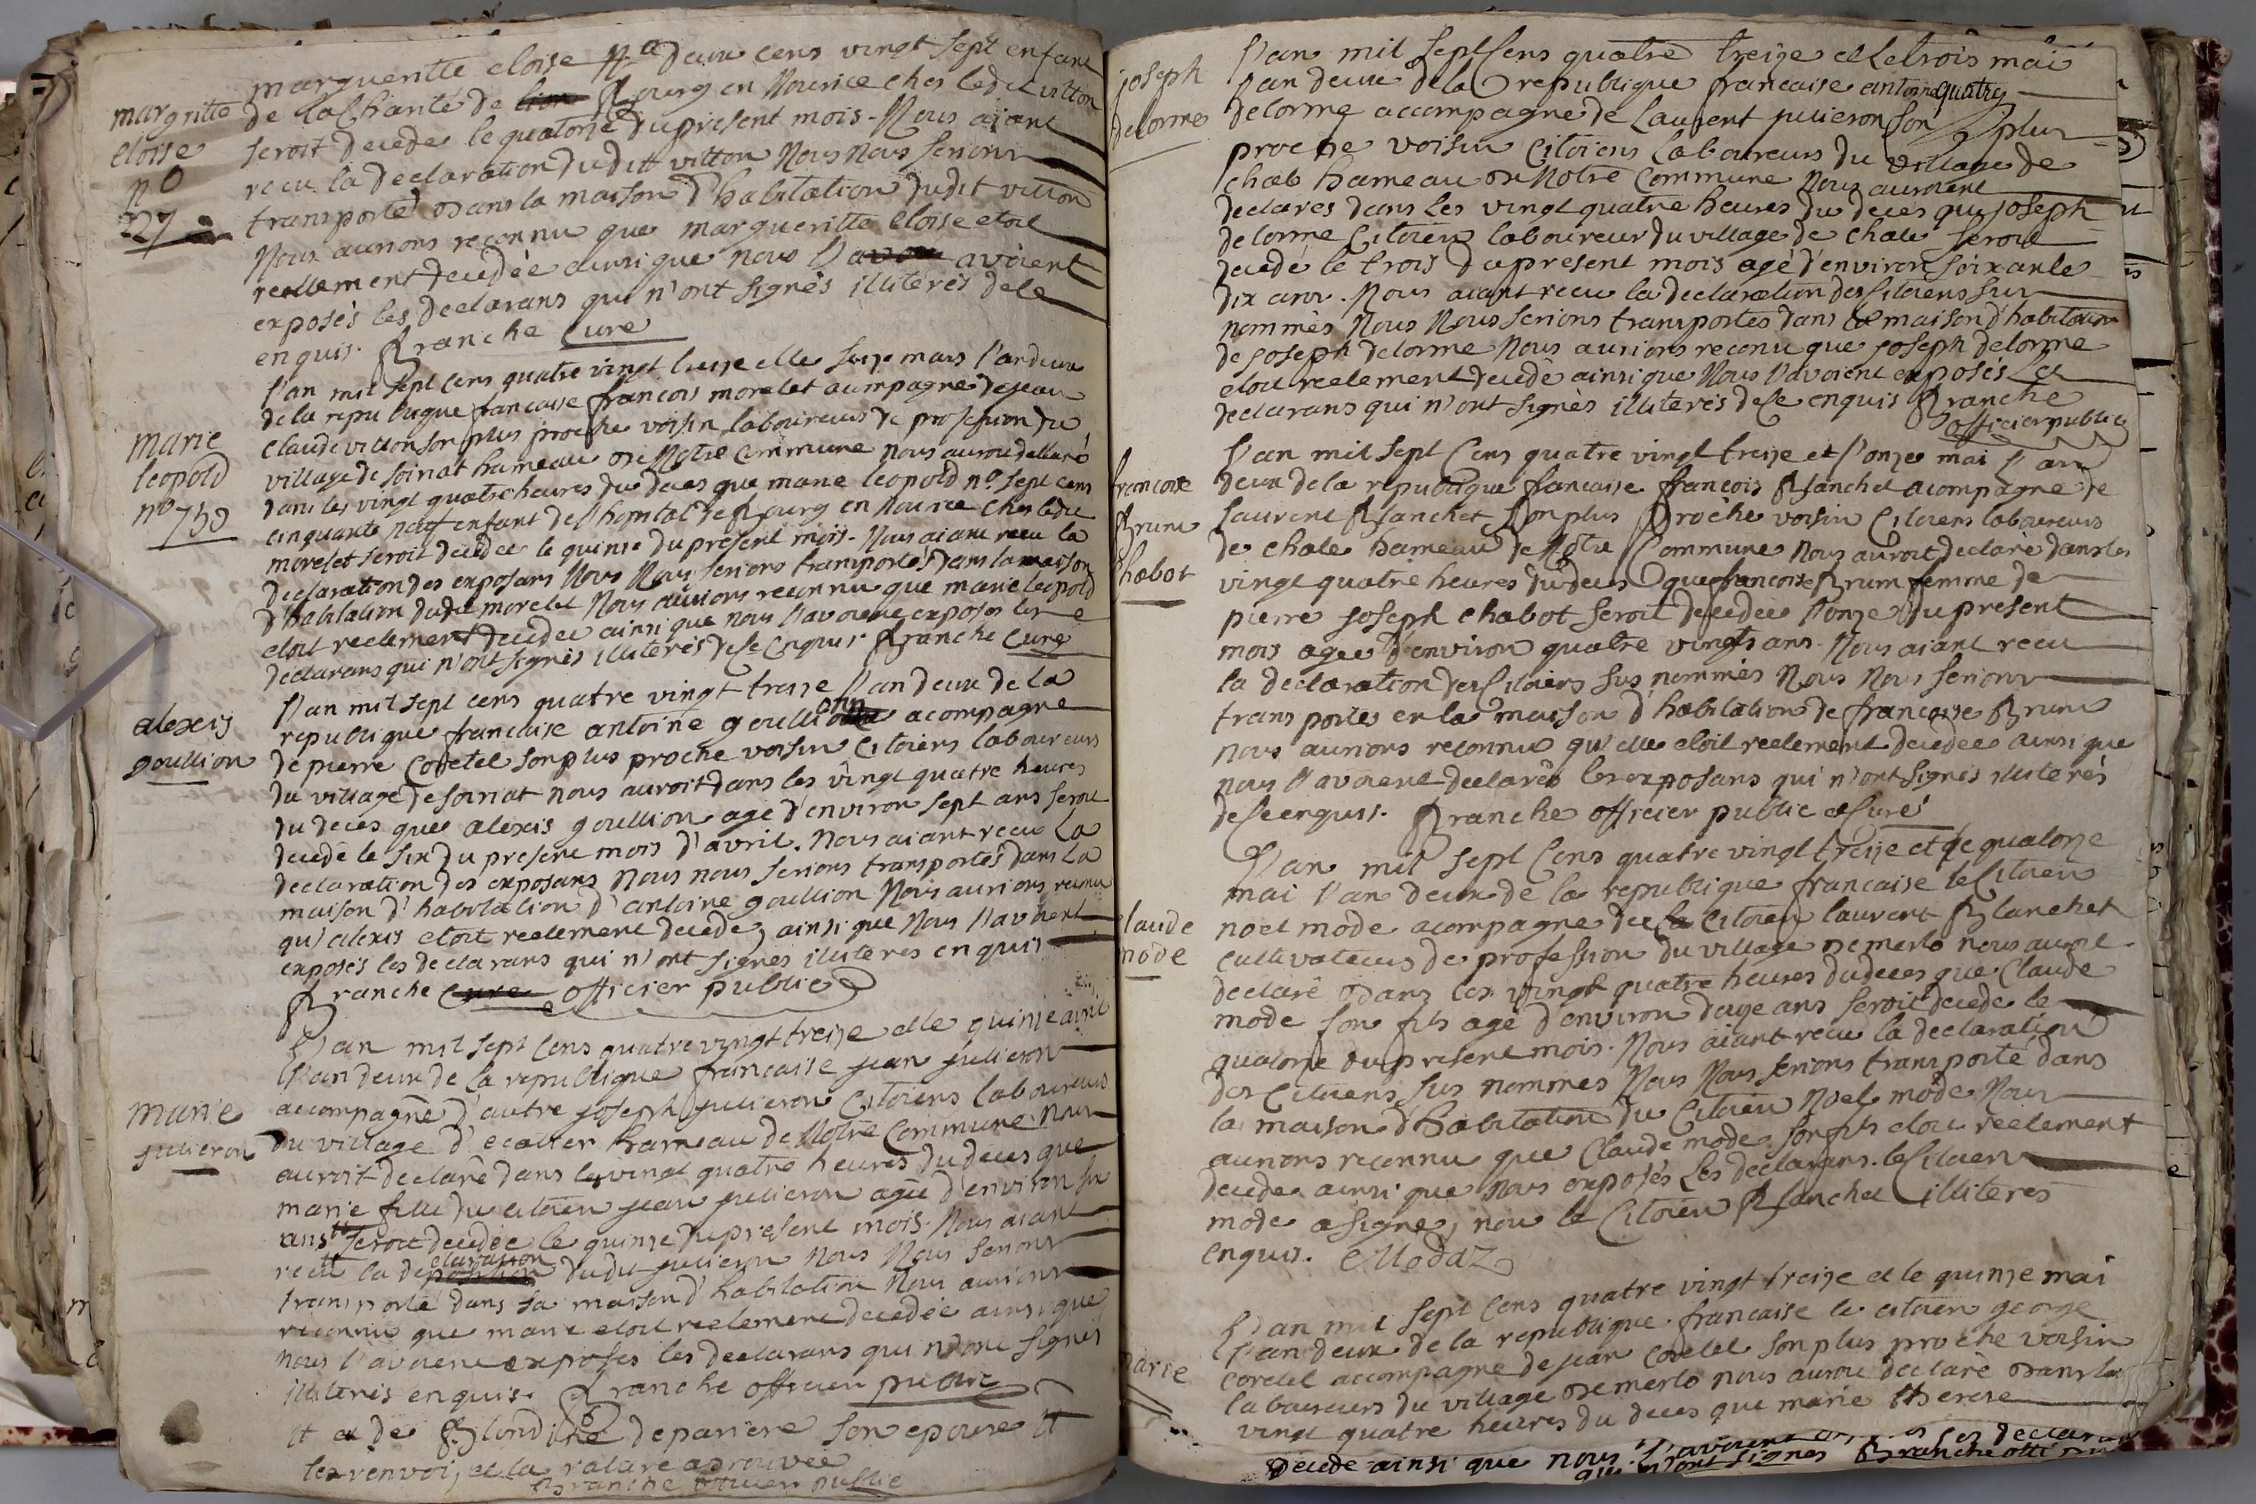 margritte
eloise
n°
227
marguerritte eloise N° deux cens vingt sept enfant
de la Charité de lion Bourg en Nourice ches ledit vitton
seroit decede le quatorze du present mois. Nous aiant
recu la declaration dudit vitton Nous Nous serions
transporté dans la maison d'habitation dudit vitton
Nous aurions reconnu que marguerite eloise etoit
reellement decedée ainsi que nous l'avoient
exposés les declarans qui n'ont signés illiterés de ce
enquis. Branche Cure
marie
leopold
n° 759
l'an mil sept cens quatre vingt treise et le seize mars l'an deux
de la republique francaise francois morelet acompagné de jean
Claude vitton son plus proche voisin laboureurs de profession du
village de soiriat hameau de Notre Commune nous auroit declaré
dans les vingt quatre heures du deces que marie leopold n° sept cens
cinquante neuf enfant de l'hopital de Bourg en nourice ches ledit
morelet seroit decedee le quinze du present mois. Nous aiant recu la
declaration des exposans Nous Nous serions transportés dans la maison
d'habitation dudit morelet Nous aurions reconnu que marie leopold
etoit reelement decedee ainsi que nous l'avoient exposés les
declarans qui n'ont signés illiterés de ce enquis Branche Cure
alexis
goullion
l'an mil sept cens quatre vingt treize l'an deux de la
republique francaise antoine goullion acompagné
de pierre Coretel son plus proche voisin Citoiens laboureurs
du village de soiriat nous auroit dans les vingt quatre heures
du deces que alexis goullion agé d'environ sept ans seroit
decedé le six du present mois d'avril. Nous aiant recu la
declaration des exposans Nous nous serions transportés dans la
maison d'habitation d'antoine goullion Nous aurions reconu
qu'alexis etoit reelement decede, ainsi que Nous l'avoient
exposés les declarans qui n'ont signés illiteres enquis
Branche Cure officier public
marie
julieron
l'an mil sept cens quatre vingt treize et le quinze avril
l'an deux de la republique francaise jean julieron
accompagné d'autre joseph julieron Citoiens laboureurs
du village d'ecotier hameau de Notre Commune Nous
auroit declaré dans les vingt quatre heures du deces que
marie fille du citoien jean julieron agée d'environ six
ans # seroit decedée le quinze du present mois. Nous aiant
recu la deposition claration dudit julieron Nous Nous serions
transporté dans sa maison d'habitation Nous aurions
reconnu que marie etoit reelement decedée ainsi que
nous l'avoient exposés les declarans qui n'ont signés
illiterés enquis. Branche officier public
# et de Blondine deparriere son epouse #
les renvoi, et la rature aprouvée
Branche officier public
joseph
delorme
l'an mil sept cens quatre treize et le trois mai
l'an deux de la republique francaise antoine quatre
delorme accompagné de laurent julieron son plus
proche voisin Citoiens laboureurs du village de
chale hameau de Notre Commune Nous auroient
declarés dans les vingt quatre heures du deces que joseph
delorme Citoien laboureur du village de chale seroit
decedé le trois du present mois agé d'environ soixante
dix ans. Nous aiant recu la declaration des Citoiens sus
nommés Nous Nous serions transportés dans la maison d'habitation
de joseph delorme Nous aurions reconu que joseph delorme
etoit reelement decedé ainsi que Nous l'avoient exposés les
declarans qui n'ont signés illiterés de ce enquis Branche
officier public
francoise
Brun
chabot
l'an mil sept cens quatre vingt treize et l'onze mai l'an
deux de la republique francaise francois Blanchet acompagné de
laurent Blanchet son plus proche voisin Citoiens laboureurs
de chale hameau de Notre Commune Nous auroit declaré dans les
vingt quatre heures du deces que francoise Brun femme de
pierre joseph chabot seroit decedee l'onze du present
mois agee d'environ quatre vingts ans. Nous aiant recu
la declaration des Citoiens sus nommés Nous Nous serions
transportés en la maison d'habitation de francoise Brun
nous aurions reconnu qu'elle etoit reelement decedee ainsi que
nous l'avoient declarés les exposans qui n'ont signés illiterés
de ce enquis. Branche officier public et Curé
claude
mode
l'an mil sept cens quatre vingt treize et le quatorze
mai l'an deux de la republique francaise le Citoien
noel mode acompagné de le Citoien laurent Blanchet
cultivateurs de profession du village de merlo nous auroit
declaré dans les vingt quatre heures du deces que Claude
mode son fils agé d'environ douze ans seroit decede le
quatorze du present mois. Nous aiant recu la declaration
des Citoiens sus nommés Nous Nous serions transporté dans
la maison d'habitation du Citoien Noel mode Nous
aurions reconnu que Claude mode son fils etoit reelement
decede ainsi que Nous exposés les declarans. le Citoien
mode a signé, non le Citoien Blanchet illiteres
enquis. Modaz
marie
l'an mil sept cens quatre vingt treize et le quinze mai
l'an deux de la republique francaise le citoien george
coretel accompagné de jean coretel son plus proche voisin
laboureurs du village de merlo nous auroit declaré dans les
vingt quatre heures du deces que marie therese
decede ainsi que nous l'avoient les declarans
qui n'ont signés Branche